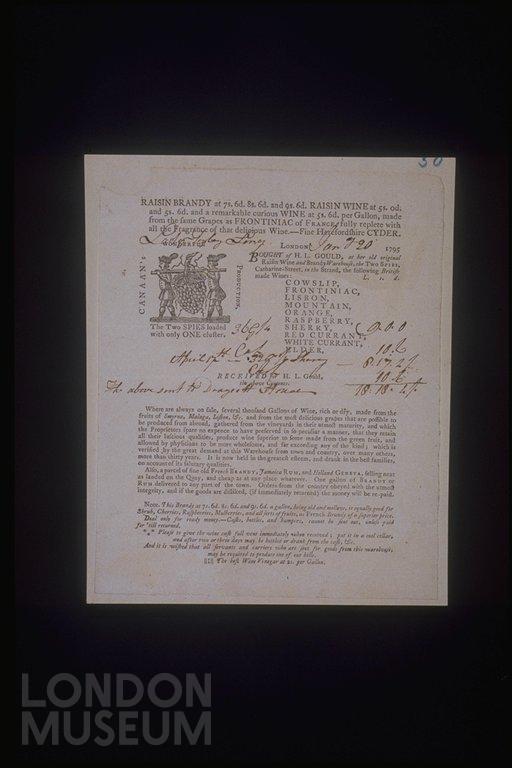 50
RAISIN BRANDY at 7s. 6d. 8s. 6d. and 9s. 6d. RAISIN WINE at 5s. 0d.
and 5s. 6d. and a remarkable curious WINE at 5s. 6d. per Gallon, made
from the same Grapes as FRONTINIAC of FRANCE, fully replete with
all the Fragrance of that delicious Wine.—Fine Herefordshire CYDER.
LONDON, Jan 20 1795
CANAAN's
PRODUCTION.
The Two SPIES loaded
with only ONE cluster.
BOUGHT of H. L. GOULD, at her old original
Raisin Wine and Brandy Warehouse, the Two SPIES,
Catharine-Street, in the Strand, the following British
made Wines: L. s. d.
COWSLIP,
FRONTINIAC,
LISBON,
MOUNTAIN,
ORANGE,
RASPBERRY,
SHERRY, 9.0.0
RED CURRANT,
WHITE CURRANT,
ELDER, 10.6
April
10.6
RECEIVED H. L. Gould,
the above Contents.
The above sent to House
Where are always on sale, several thousand Gallons of Wine, rich or dry, made from the
fruits of Smyrna, Malaga, Lisbon, &c. and from the most delicious grapes that are possible to
be produced from abroad, gathered from the vineyards in their utmost maturity, and which
the Proprietors spare no expence to have preserved in so peculiar a manner, that they retain
all their luscious qualities, produce wine superior to some made from the green fruit, and
allowed by physicians to be more wholesome, and far exceeding any of the kind; which is
verified by the great demand at this Warehouse from town and country, over many others,
more than thirty years. It is now held in the greatest esteem, and drank in the best families,
on account of its salutary qualities.
Also, a parcel of fine old French BRANDY, Jamaica RUM, and Holland GENEVA, selling neat
as landed on the Quay, and cheap as at any place whatever. One gallon of BRANDY or
RUM delivered to any part of the town. Orders from the country obeyed with the utmost
integrity, and if the goods are disliked, (if immediately returned) the money will be re-paid.
Note. This Brandy at 7s. 6d. 8s. 6d. and 9s. 6d. a gallon, being old and mellow, is equally good for
Shrub, Cherries, Raspberries, Mulberries, and all sorts of fruits, as French Brandy of a superior price.
Deal only for ready money.—Casks, bottles, and hampers, cannot be sent out, unless paid
for 'till returned.
*** Please to give the wine cask full vent immediately when received; put it in a cool cellar,
and after two or three days may be bottled or drank from the cask, &c.
And it is wished that all servants and carriers who are sent for goods from this warehouse,
may be required to produce one of our bills.
The best Wine Vinegar at 2s. per Gallon.
LONDON
MUSEUM